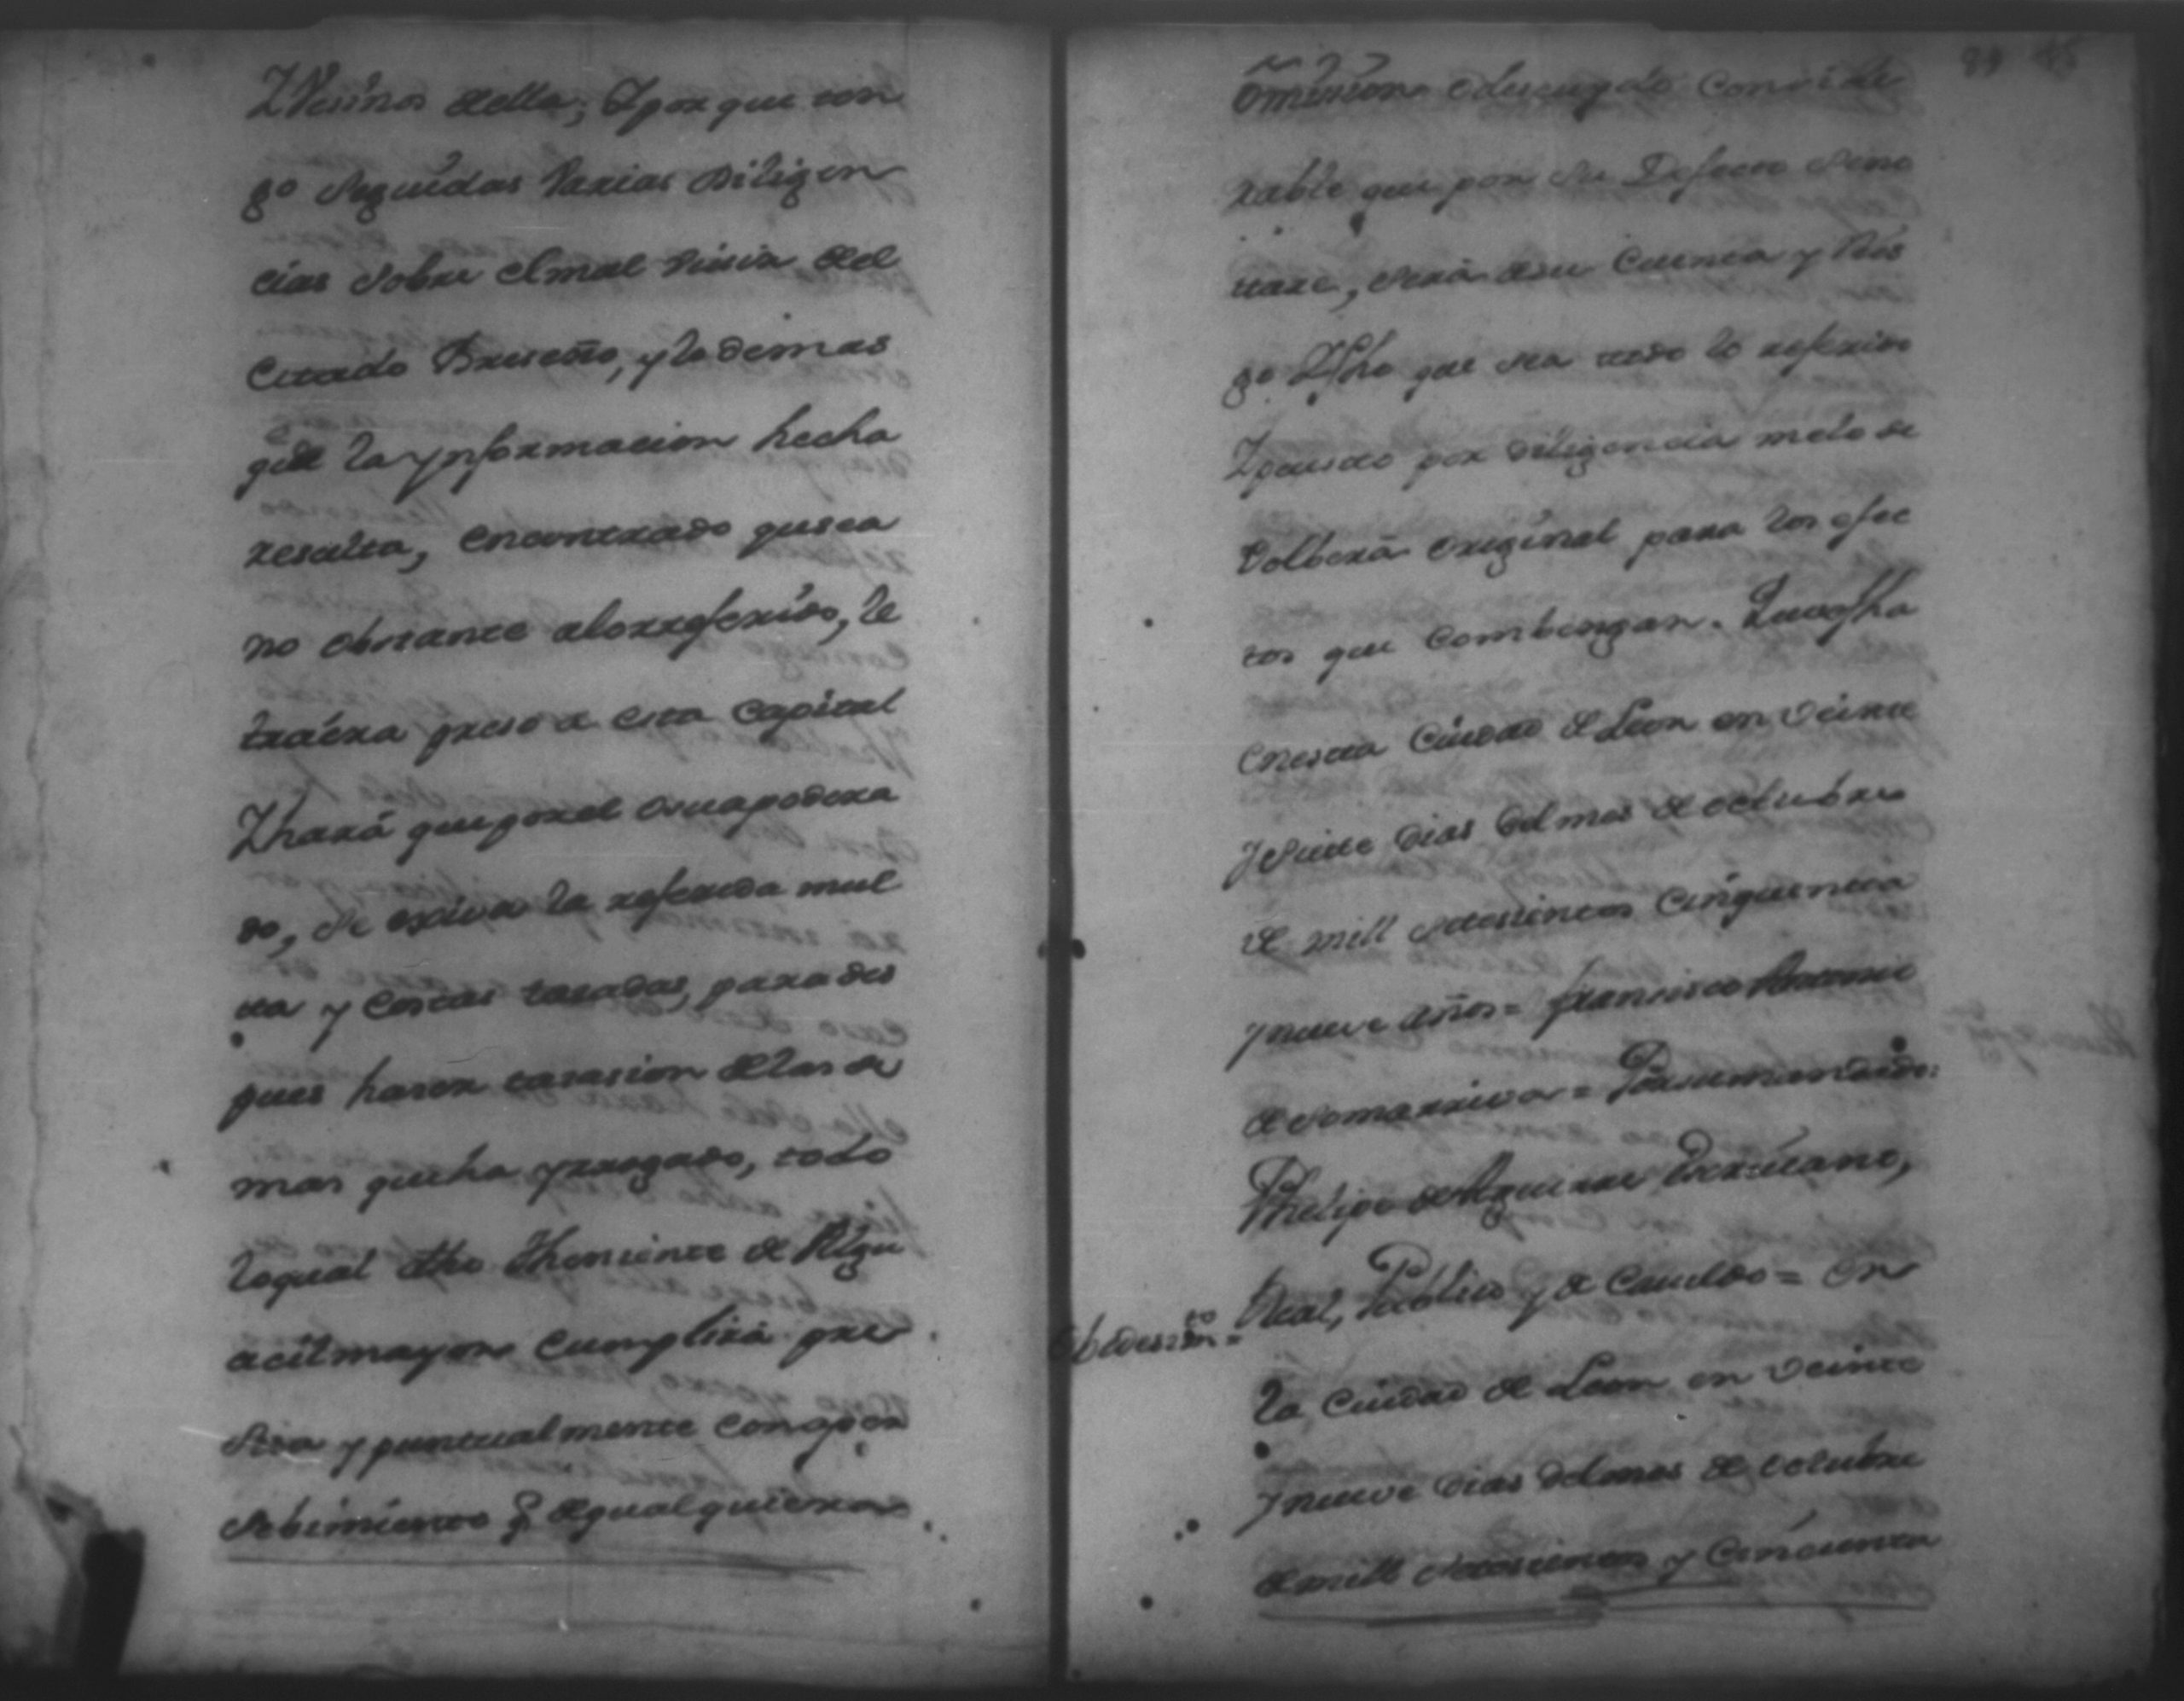 Y Vesinos della; Y por que ten
go seguidas Varias Diligen
cias sobre el mal Vivir del
Citado Briseño, y lo demas
q̃ de la ynformacion hecha
resulta, encontrado que sea
no obstante alo rreferido, le
traéra preso a esta Capital
Y hará que por el o su apodera
do, se exiva la referida mul
ta y Costas tasadas, para des
pues haser tasasion de las de
mas que ha yrrogado, todo
lo qual dho Theniente de Algu
acil mayor Cumplirá pre
sisa y puntualmente con aper
sebimiento q̃ de qualquiera
omision o descuydo Conside
rable que por su Defecto se no
tare, será de su Cuenta y Ries
go Y fho que sea todo lo referido
Y puesto por diligencia me lo de
bolberá original para los efec
tos que Combengan. Que es fha
en esta Ciudad de Leon en veinte
y siete dias del mes de octubre
de mill setesientos Cinquenta
y nueve años = francisco Antonio
de Somarriva = Por su mandado =
Phelipe de Aguirre Escrivano,
Real, Publico y de Cavildo = En
Obedesimto =
la Ciudad de Leon en veinte
y nueve dias del mes de octubre
de mill setesientos y Cincuenta